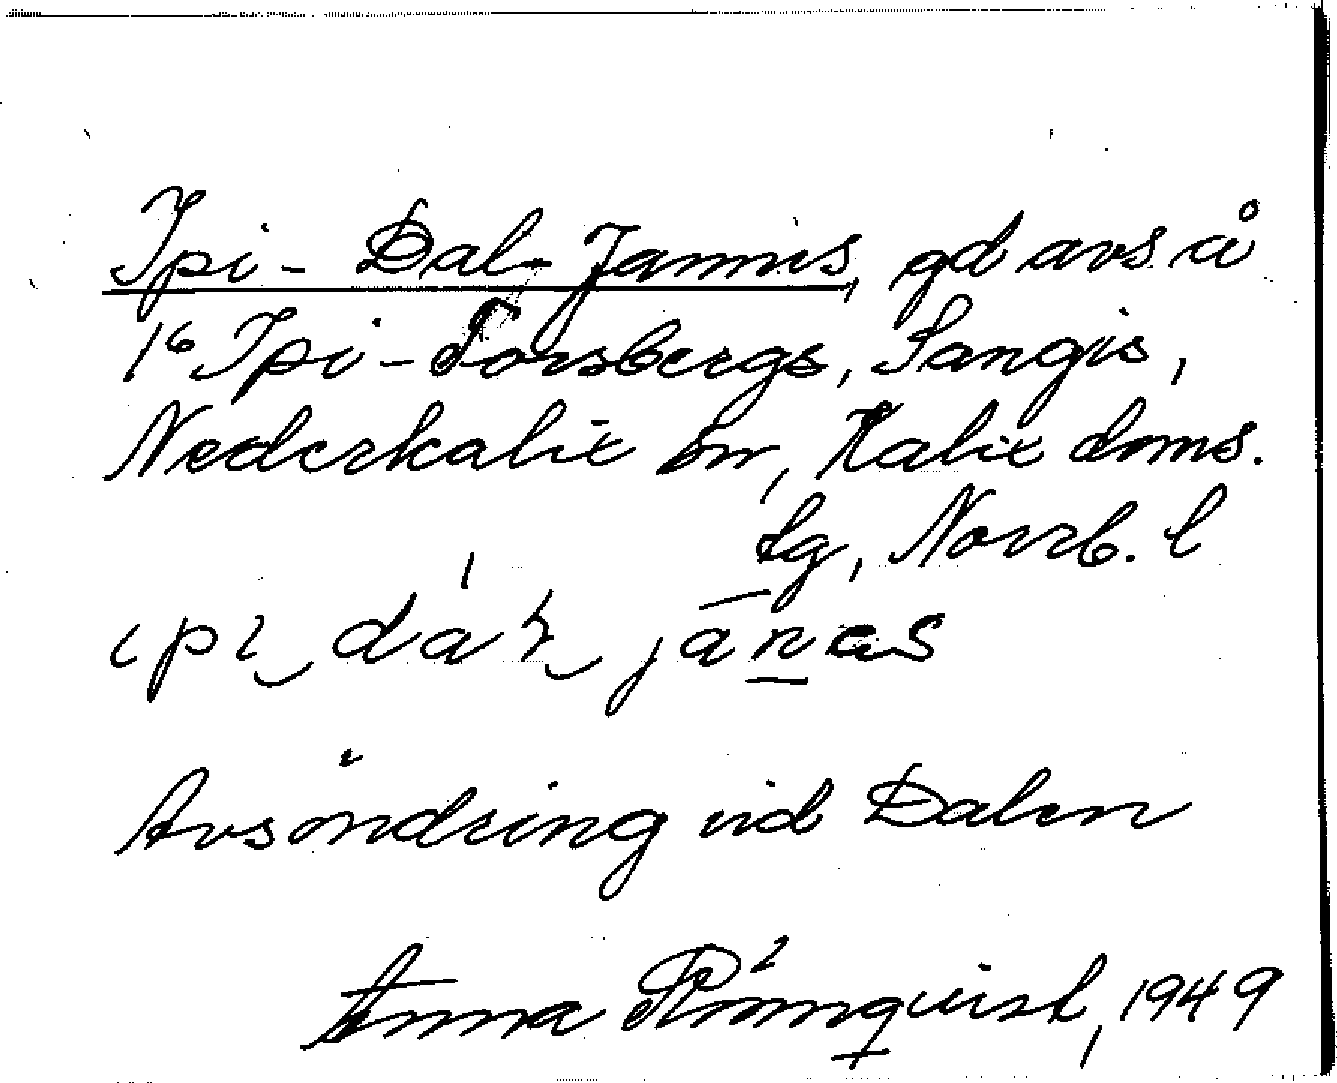 Ipi-Dal-Jannis, gd avs å
1⁶ Ipi-Forsbergs, Sangis,
Nederkalix sn, Kalix doms.
sg, Norrb. l
ipi dal janes
Avsöndring vid Dalen
Anna Rönnqvist, 1949